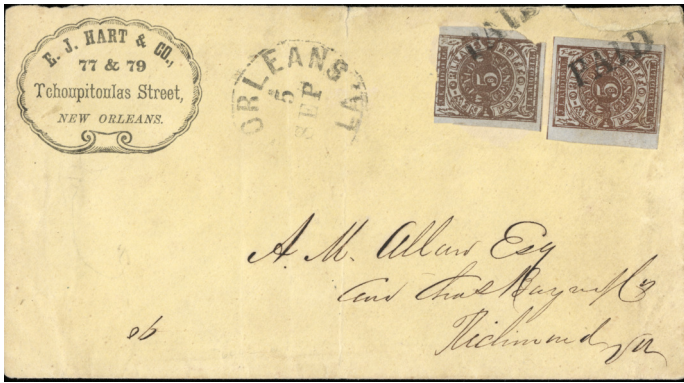 E. J. HART & CO.,
77 & 79
Tchoupitoulas Street,
NEW ORLEANS.
ORLEANS
5
SEP
PAID
5
PAID
5
A. M. Allan Esq
Care Chas
Richmond Va